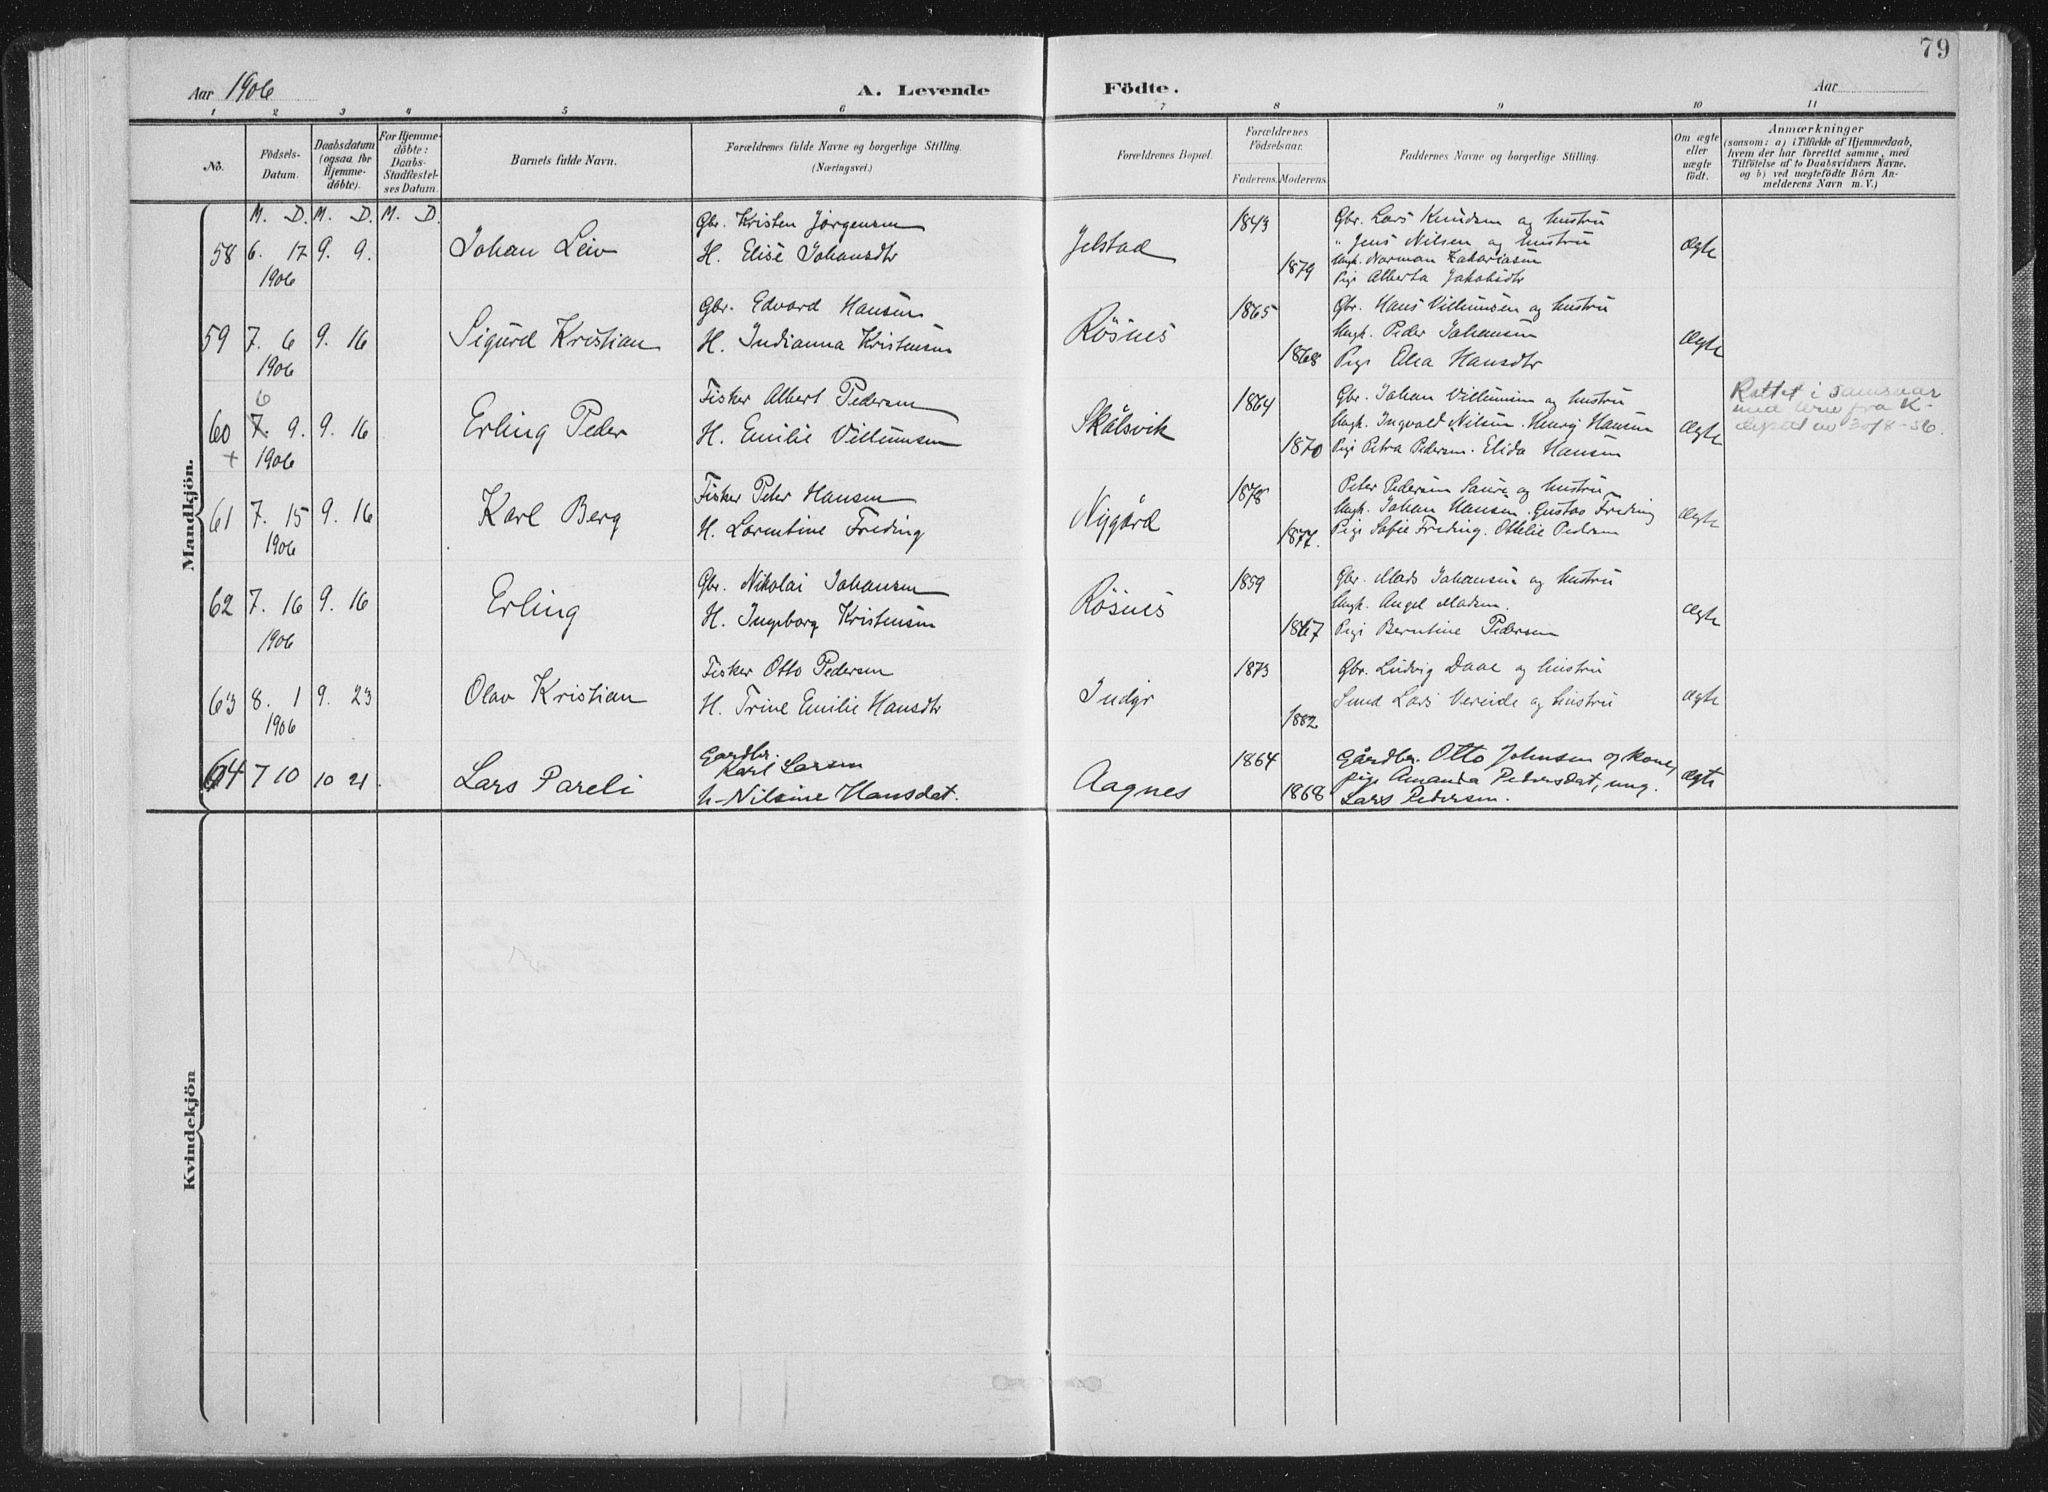 79
Aar 1906
A. Levende
Födte.
Aar
1 2 3 4 5 6 7 8 9 10 11
No.
Födsels-Datum.
Daabsdatum (ogsaa for Hjemmedöbte).
For Hjemmedöbte: Daabs-Stadfæstelses Datum.
Barnets fulde Navn.
Forældrenes fulde Navne og borgerlige Stilling.
(Næringsvei.)
Forældrenes Bopæl.
Forældrenes Födselsaar.
Faderens. Moderens.
Faddernes Navne og borgerlige Stilling.
Om ægte eller uægte födt.
Anmærkninger
(saasom: a) i Tilfælde af Hjemmedaab, hvem der har forrettet samme, med Tilföielse af to Daabsvidners Navne, og b) ved uægtefödte Börn Anmelderens Navn m. V.)
Mandkjön.
M. D. M. D. M. D.
58 6. 17 1906 9. 9. Johan Leiv
Gbr. Kristen Jörgensen
H. Elise Johansdtr
Jelstad 1843 1879
Gbr. Lars Knudsen og hustru
" Jens Nilsen og hustru
Ungk. Norman Zakariasen
Pige Alberta Jakobsdtr
ægte
59 7. 6 1906 9. 16 Sigurd Kristian
Gbr. Edvard Hansen
H. Indianna Kristensen
Rösnes 1865 1868
Gbr. Hans Villumsen og hustru
Ungk. Peder Johansen
Pige Elea Hansdtr
ægte
60 + 7. 9. 6 1906 9. 16 Erling Peder
Fisker Albert Pedersen
H. Emilie Villumsen
Skålsvik 1864 1870
Gbr. Johan Villumsen og hustru
Ungk. Ingvald Nilsen. Henry Hansen
Pige Petra Pedersen. Elida Hansen
ægte
Rettet i samsvar
med brev fra K-
30/8-56.
61 7. 15 1906 9. 16 Karl Berg
Fisker Peter Hansen
H. Lorentine Freding
Nygård 1878 1877.
Peter Pedersen Saura og hustru
Ungk. Johan Hansen. Gustav Freding
Pige Sofie Freding. Ottelie Pedersen
ægte
62 7. 16 1906 9. 16 Erling
Gbr. Nikolai Johansen
H. Ingeborg Kristensen
Rösnes 1859 1867
Gbr. Mads Johansen og hustru
Ungk. Angel Madsen.
Pige Berntine Pedersen
ægte
63 8. 1 1906 9. 23 Olav Kristian
Fisker Otto Pedersen
H. Trine Emilie Hansdtr
Indyr 1873 1882
Gbr. Ludvig Daae og hustru
Smed Lars Vereide og hustru
ægte
64 7 10 10 21. Lars Pareli
Gardbr. Karl Larsen
h- Nilsine Hansdat.
Aagnes 1864 1868
Gårdbr. Otto Johnsen og kone,
pige Amanda Pedersdat, ung.
Lars Pedersen.
ægte
Kvindekjön